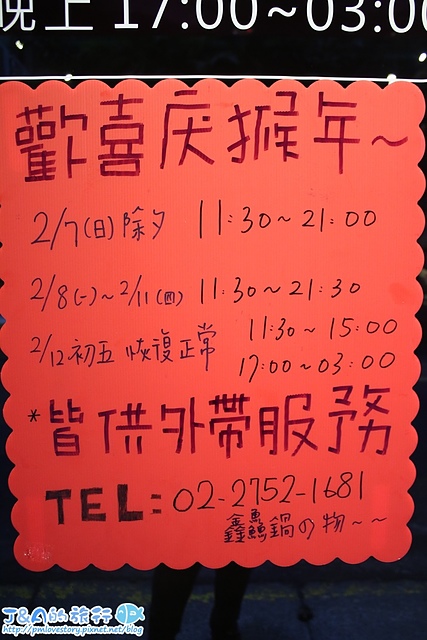 晚上 17:00~03:00
歡喜庆猴年~
2/7(日)除夕 11:30~21:00
2/8(一)~2/11(四) 11:30~21:30
2/12初五 恢復正常 11:30~15:00
17:00~03:00
*皆供外帶服務
TEL:02-2752-1681
鑫鱻鍋の物~~
J&A的旅行
http://pmlovestory.pixnet.net/blog